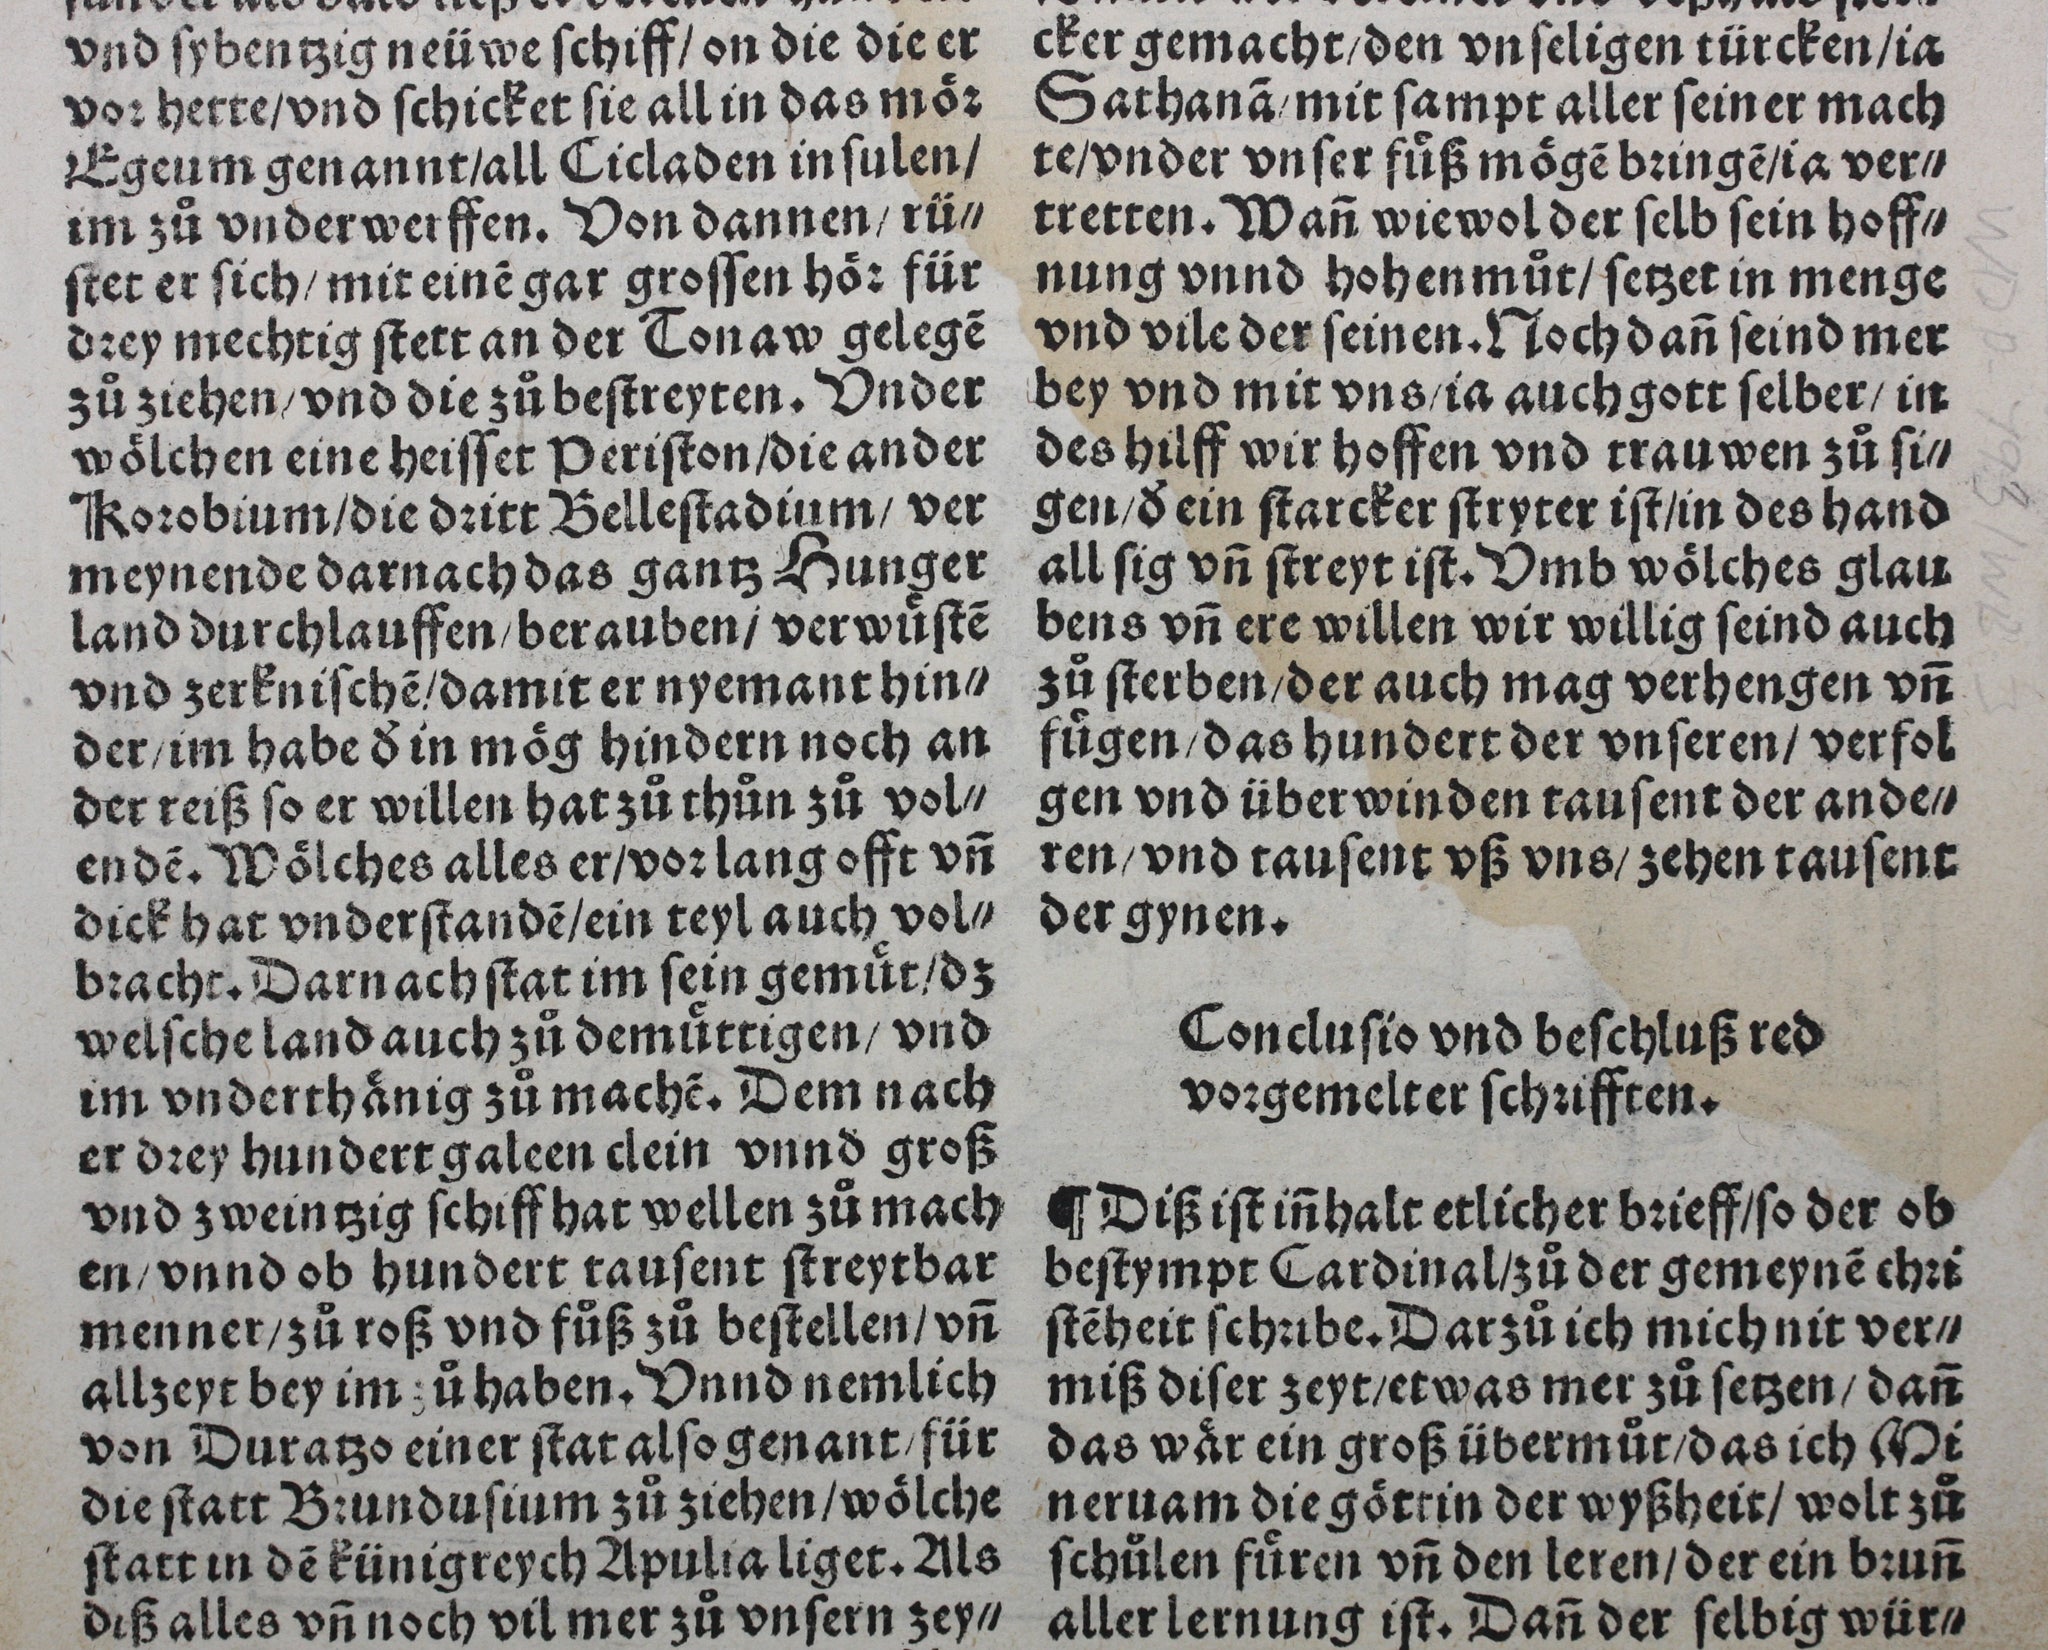 vnd sybentzig neüwe schiff/ on die die er
vor hette/vnd schicket sie all in das mör
Egeum genannt/all Cicladen insulen/
im zů vnderwerffen. Von dannen/ rü⸗
stet er sich/ mit einē gar grossen hör für
drey mechtig stett an der Tonaw gelegē
zů ziehen/ vnd die zů bestreyten. Vnder
wölchen eine heisset Periston/die ander
Korobium/die dritt Bellestadium/ ver
meynende darnach das gantz Hunger
land durchlauffen/ berauben/ verwüstē
vnd zerknischē/damit er nyemant hin⸗
der/im habe d̕ in mög hindern noch an
der reiß so er willen hat zů thůn zů vol⸗
endē. Wölches alles er/vor lang offt vn̄
dick hat vnderstandē/ein teyl auch vol⸗
bracht. Darnach stat im sein gemüt/dz
welsche land auch zů demüttigen/ vnd
im vnderthänig zů machē. Dem nach
er drey hundert galeen clein vnnd groß
vnd zweintzig schiff hat wellen zů mach
en/ vnnd ob hundert tausent streytbar
menner/zů roß vnd fůß zů bestellen/ vn̄
allzeyt bey im zů haben. Vnnd nemlich
von Duratzo einer stat also genant/ für
die statt Brundusium zů ziehen/wölche
statt in dē künigreych Apulia liget. Als
diß alles vn̄ noch vil mer zů vnsern zey⸗
cker gemacht/den vnseligen türcken/ia
Sathanā/ mit sampt aller seiner mach
te/vnder vnser fůß mögē bringē/ia ver⸗
tretten. Wan̄ wiewol der selb sein hoff⸗
nung vnnd hohenmůt/ setzet in menge
vnd vile der seinen. Noch dan̄ seind mer
bey vnd mit vns/ia auch gott selber/ in
des hilff wir hoffen vnd trauwen zů si⸗
gen/d̕ ein starcker stryter ist/in des hand
all sig vn̄ streyt ist. Vmb wölches glau
bens vn̄ ere willen wir willig seind auch
zů sterben/der auch mag verhengen vn̄
fügen/das hundert der vnseren/ verfol
gen vnd überwinden tausent der ande⸗
ren/ vnd tausent vß vns/ zehen tausent
der gynen.
Conclusio vnd beschluß red
vorgemelter schrifften.
¶ Diß ist in̄halt etlicher brieff/so der ob
bestympt Cardinal/zů der gemeynē chri
stēheit schribe. Darzů ich mich nit ver⸗
miß diser zeyt/etwas mer zů setzen/ dan̄
das wär ein groß übermůt/das ich Mi
neruam die göttin der wyßheit/ wolt zů
schůlen füren vn̄ den leren/der ein brun̄
aller lernung ist. Dan̄ der selbig wür⸗